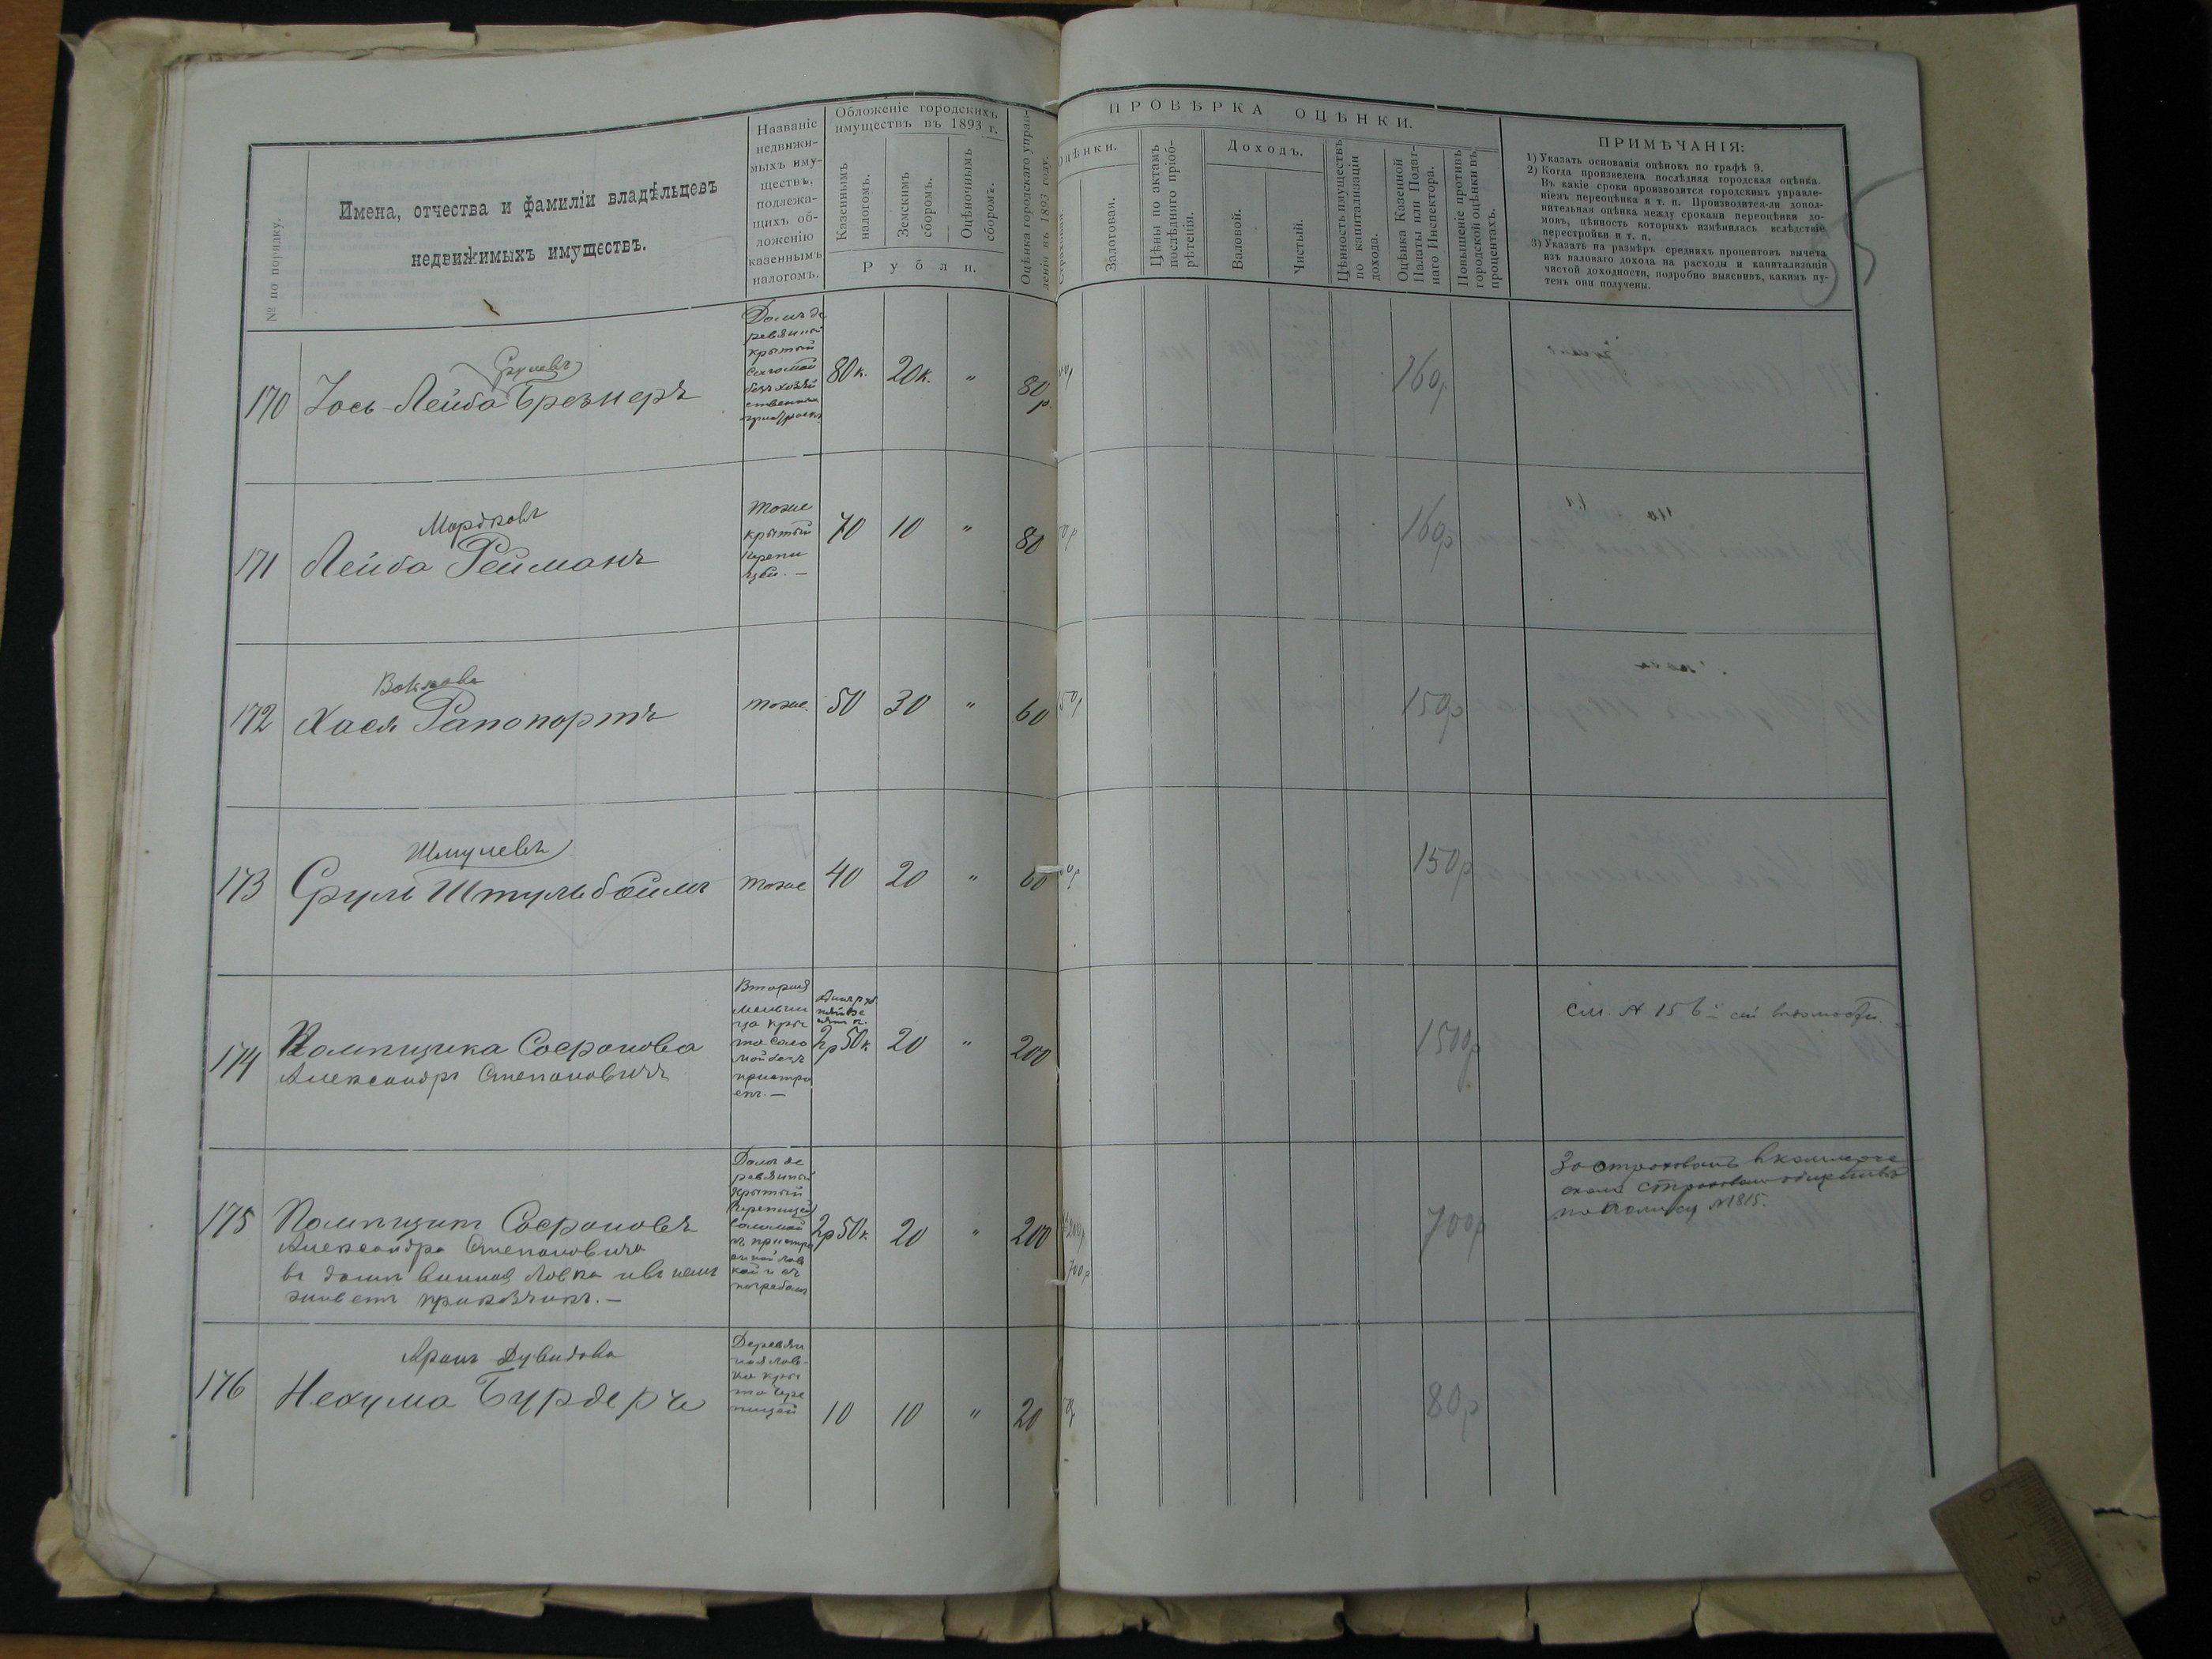 № по порядку.
Имена, отчества и фамиліи владѣльцевъ
недвижимыхъ имуществъ.
Названіе
недвижи-
мыхъ иму-
ществъ,
подлежа-
щихъ об-
ложенію
казеннымъ
налогомъ.
Обложеніе городскихъ
имуществъ въ 1893 г.
Казеннымъ
налогомъ.
Земскимъ
сборомъ.
Оцѣночнымъ
сборомъ.
Рубли.
Оцѣнка городскаго управ-
ленія въ 1893 году.
ПРОВѢРКА ОЦѢНКИ.
Оцѣнки.
Страховая.
Залоговая.
Цѣны по актамъ
послѣдняго пріоб-
рѣтенія.
Доходъ.
Валовой.
Чистый.
Цѣнность имуществъ
по капитализаціи
дохода.
Оцѣнка Казенной
Палаты или Подат-
наго Инспектора.
Повышеніе противъ
городской оцѣнки въ
процентахъ.
ПРИМѢЧАНІЯ:
1) Указать основанія оцѣнокъ по графѣ 9.
2) Когда произведена послѣдняя городская оцѣнка.
Въ какіе сроки производится городскимъ управле-
ніемъ переоцѣнка и т. п. Производится-ли допол-
нительная оцѣнка между сроками переоцѣнки до-
мовъ, цѣнность которыхъ измѣнилась вслѣдствіе
перестройки и т. п.
3) Указать на размѣръ среднихъ процентовъ вычета
изъ валоваго дохода на расходы и капитализаціи
чистой доходности, подробно выяснивъ, какимъ пу-
темъ они получены.
Срулевъ
170 Іось-Лейба Брезнеръ
Домъ де
ревяный
крытый
80к. 20к. " 80р. 160р
Мордковъ
171 Лейба Рейманъ
тоже
крытый
70 10 " 80 160р
172 Хася Рапопортъ тоже. 50 30 " 60 150р
Шмулевъ
173 Сруль Штульбоимъ тоже 40 20 " 60 150р
174 Помпщика Сосронова
Александръ Степановичъ
2р50к. 20 " 200 1500р
см. № 156 й сей вѣдомости.
175 Помпщикъ Сосроновъ
Александра Степановича
въ домѣ винная Лавка и въ немъ
живетъ прикащикъ. —
Домъ де
ревянный
крытый
2р50к. 20 " 200 700р 700р
Застрахованъ въ коммерче
скомъ страховомъ обществѣ
по Полису №1815.
Аронъ Дувидова
176 Нехума Бурдеръ
Деревян
ная лав-
ка кры
та чере
пицей
10 10 " 20 80р
0 1 2 3